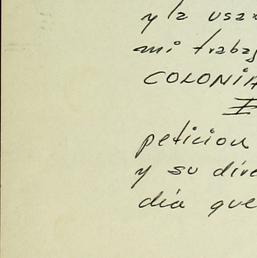 y la usa
mi trabaj
COLONIA
I
peticion
y su dire
dia que